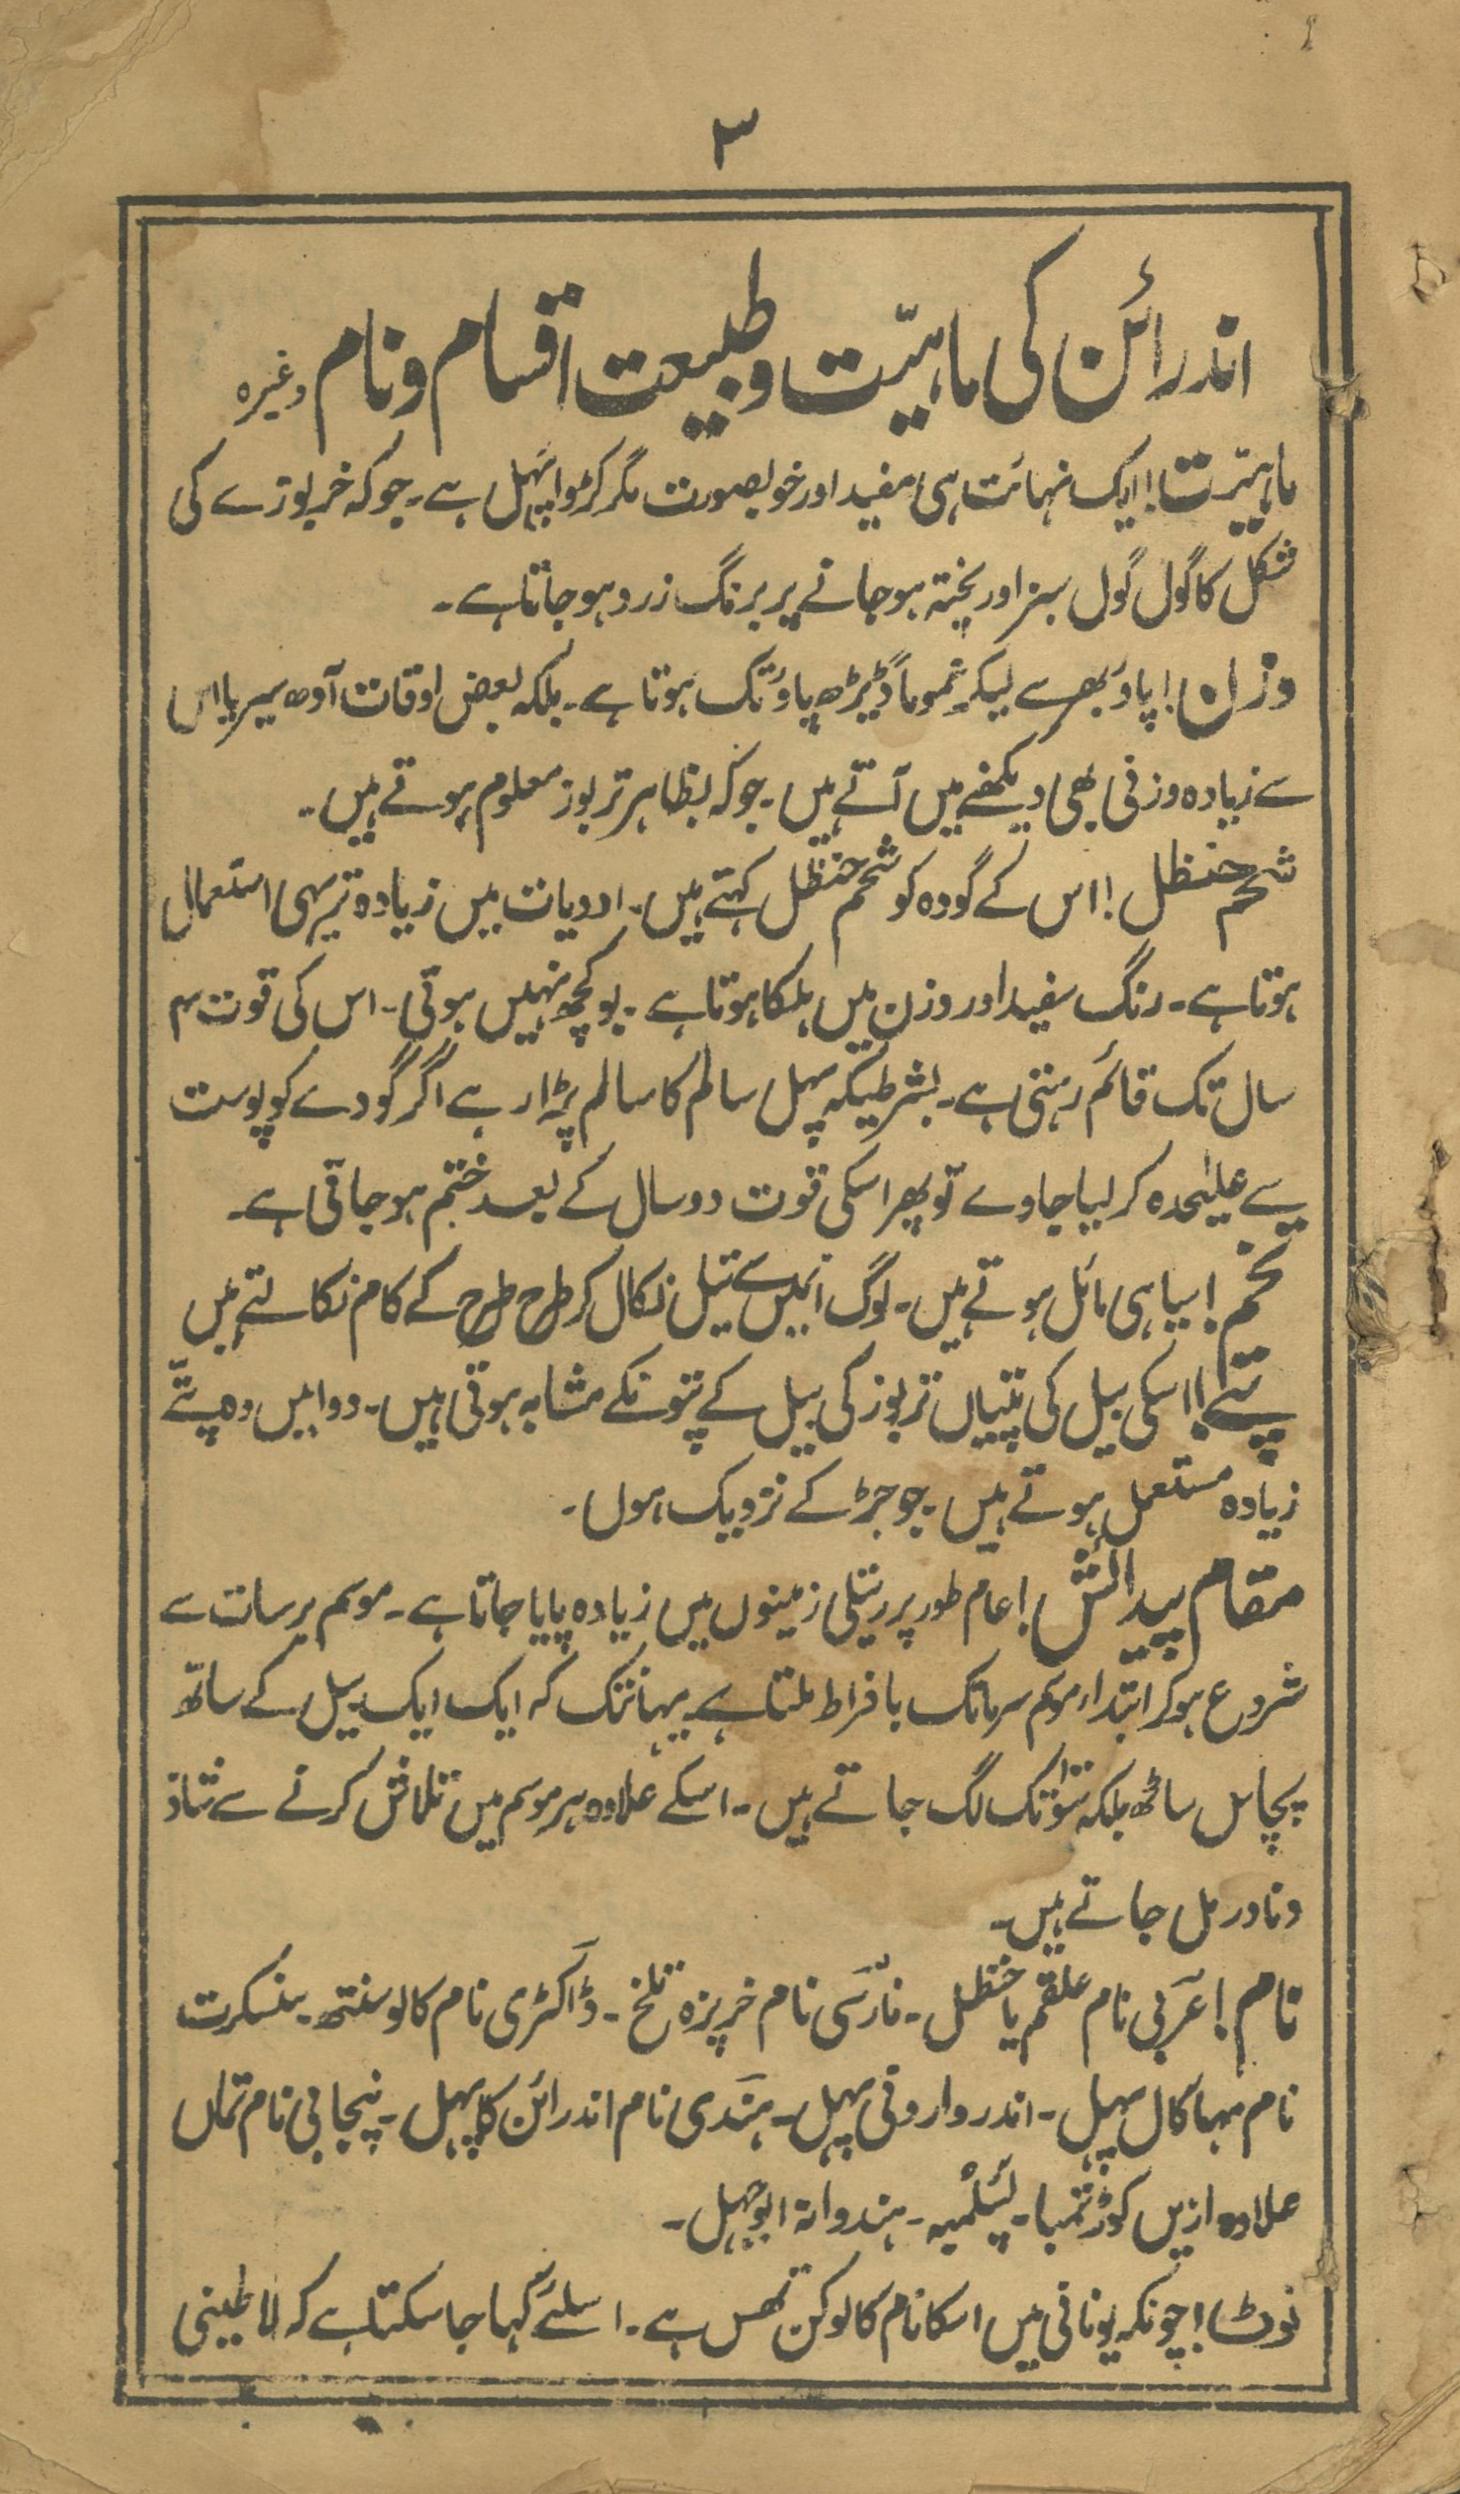 ۳
اندرائن کی ماہیّت و طبیعت اقسام و نام وغیرہ
ماہیّت! ایک نہائت ہی مفید اور خوبصورت مگر کڑوا پہل ہے۔ جو کہ خربوزے کی
شکل کا گول گول سبز اور پختہ ہو جانے پر برنگ زرد ہو جاتا ہے۔
وزن! پاؤ بھر سے لیکر عموماً ڈیڑھ پاؤ تک ہوتا ہے۔ بلکہ بعض اوقات آدھ سیر یا اس
سے زیادہ وزنی بھی دیکھنے میں آتے ہیں۔ جو کہ بظاہر تربوز معلوم ہوتے ہیں۔
شحم حنظل! اس کے گودہ کو شحم حنظل کہتے ہیں۔ ادویات میں زیادہ تر یہی استعمال
ہوتا ہے۔ رنگ سفید اور وزن میں ہلکا ہوتا ہے۔ بو کچھ نہیں ہوتی۔ اس کی قوت ۴
سال تک قائم رہتی ہے۔ بشرطیکہ پہل سالم کا سالم پڑا رہے اگر گودے کو پوست
سے علیٰحدہ کر لیا جاوے تو پھر اسکی قوت دو سال کے بعد ختم ہو جاتی ہے۔
تخم! سیاہی مائل ہوتے ہیں۔ لوگ انمیں سے تیل نکال کر طرح طرح کے کام نکالتے ہیں
پتے! اسکی بیل کی پتیاں تربوز کی بیل کے پتونکے مشابہ ہوتی ہیں۔ دوا میں وہ پتّے
زیادہ مستعمل ہوتے ہیں۔ جو جڑ کے نزدیک ہوں۔
مقام پیدائش! عام طور پر ریتلی زمینوں میں زیادہ پایا جاتا ہے۔ موسم برسات سے
شروع ہو کر ابتداء موسم سرما تک بافراط ملتا ہے۔ یہانتک کہ ایک ایک بیل کے ساتھ
پچاس ساٹھ بلکہ سَو تک لگ جاتے ہیں۔ اسکے علاوہ ہر موسم میں تلاش کرنے سے شاذ
و نادر مل جاتے ہیں۔
نام! عربی نام علقم یا حنظل۔ فارسی نام خرپزہ تلخ۔ ڈاکٹری نام کالوسنتھ۔ سنسکرت
نام مہاکال پہل۔ اندر وارونی پہل۔ ہندی نام اندرائن کا پہل۔ پنجابی نام تماں
علاوہ ازیں کوڑ تمبا۔ ہندوانہ ابوجہل۔
نوٹ! چونکہ یونانی میں اسکا نام کالوکن تھس ہے۔ اسلئے کہا جا سکتا ہے کہ لاطینی